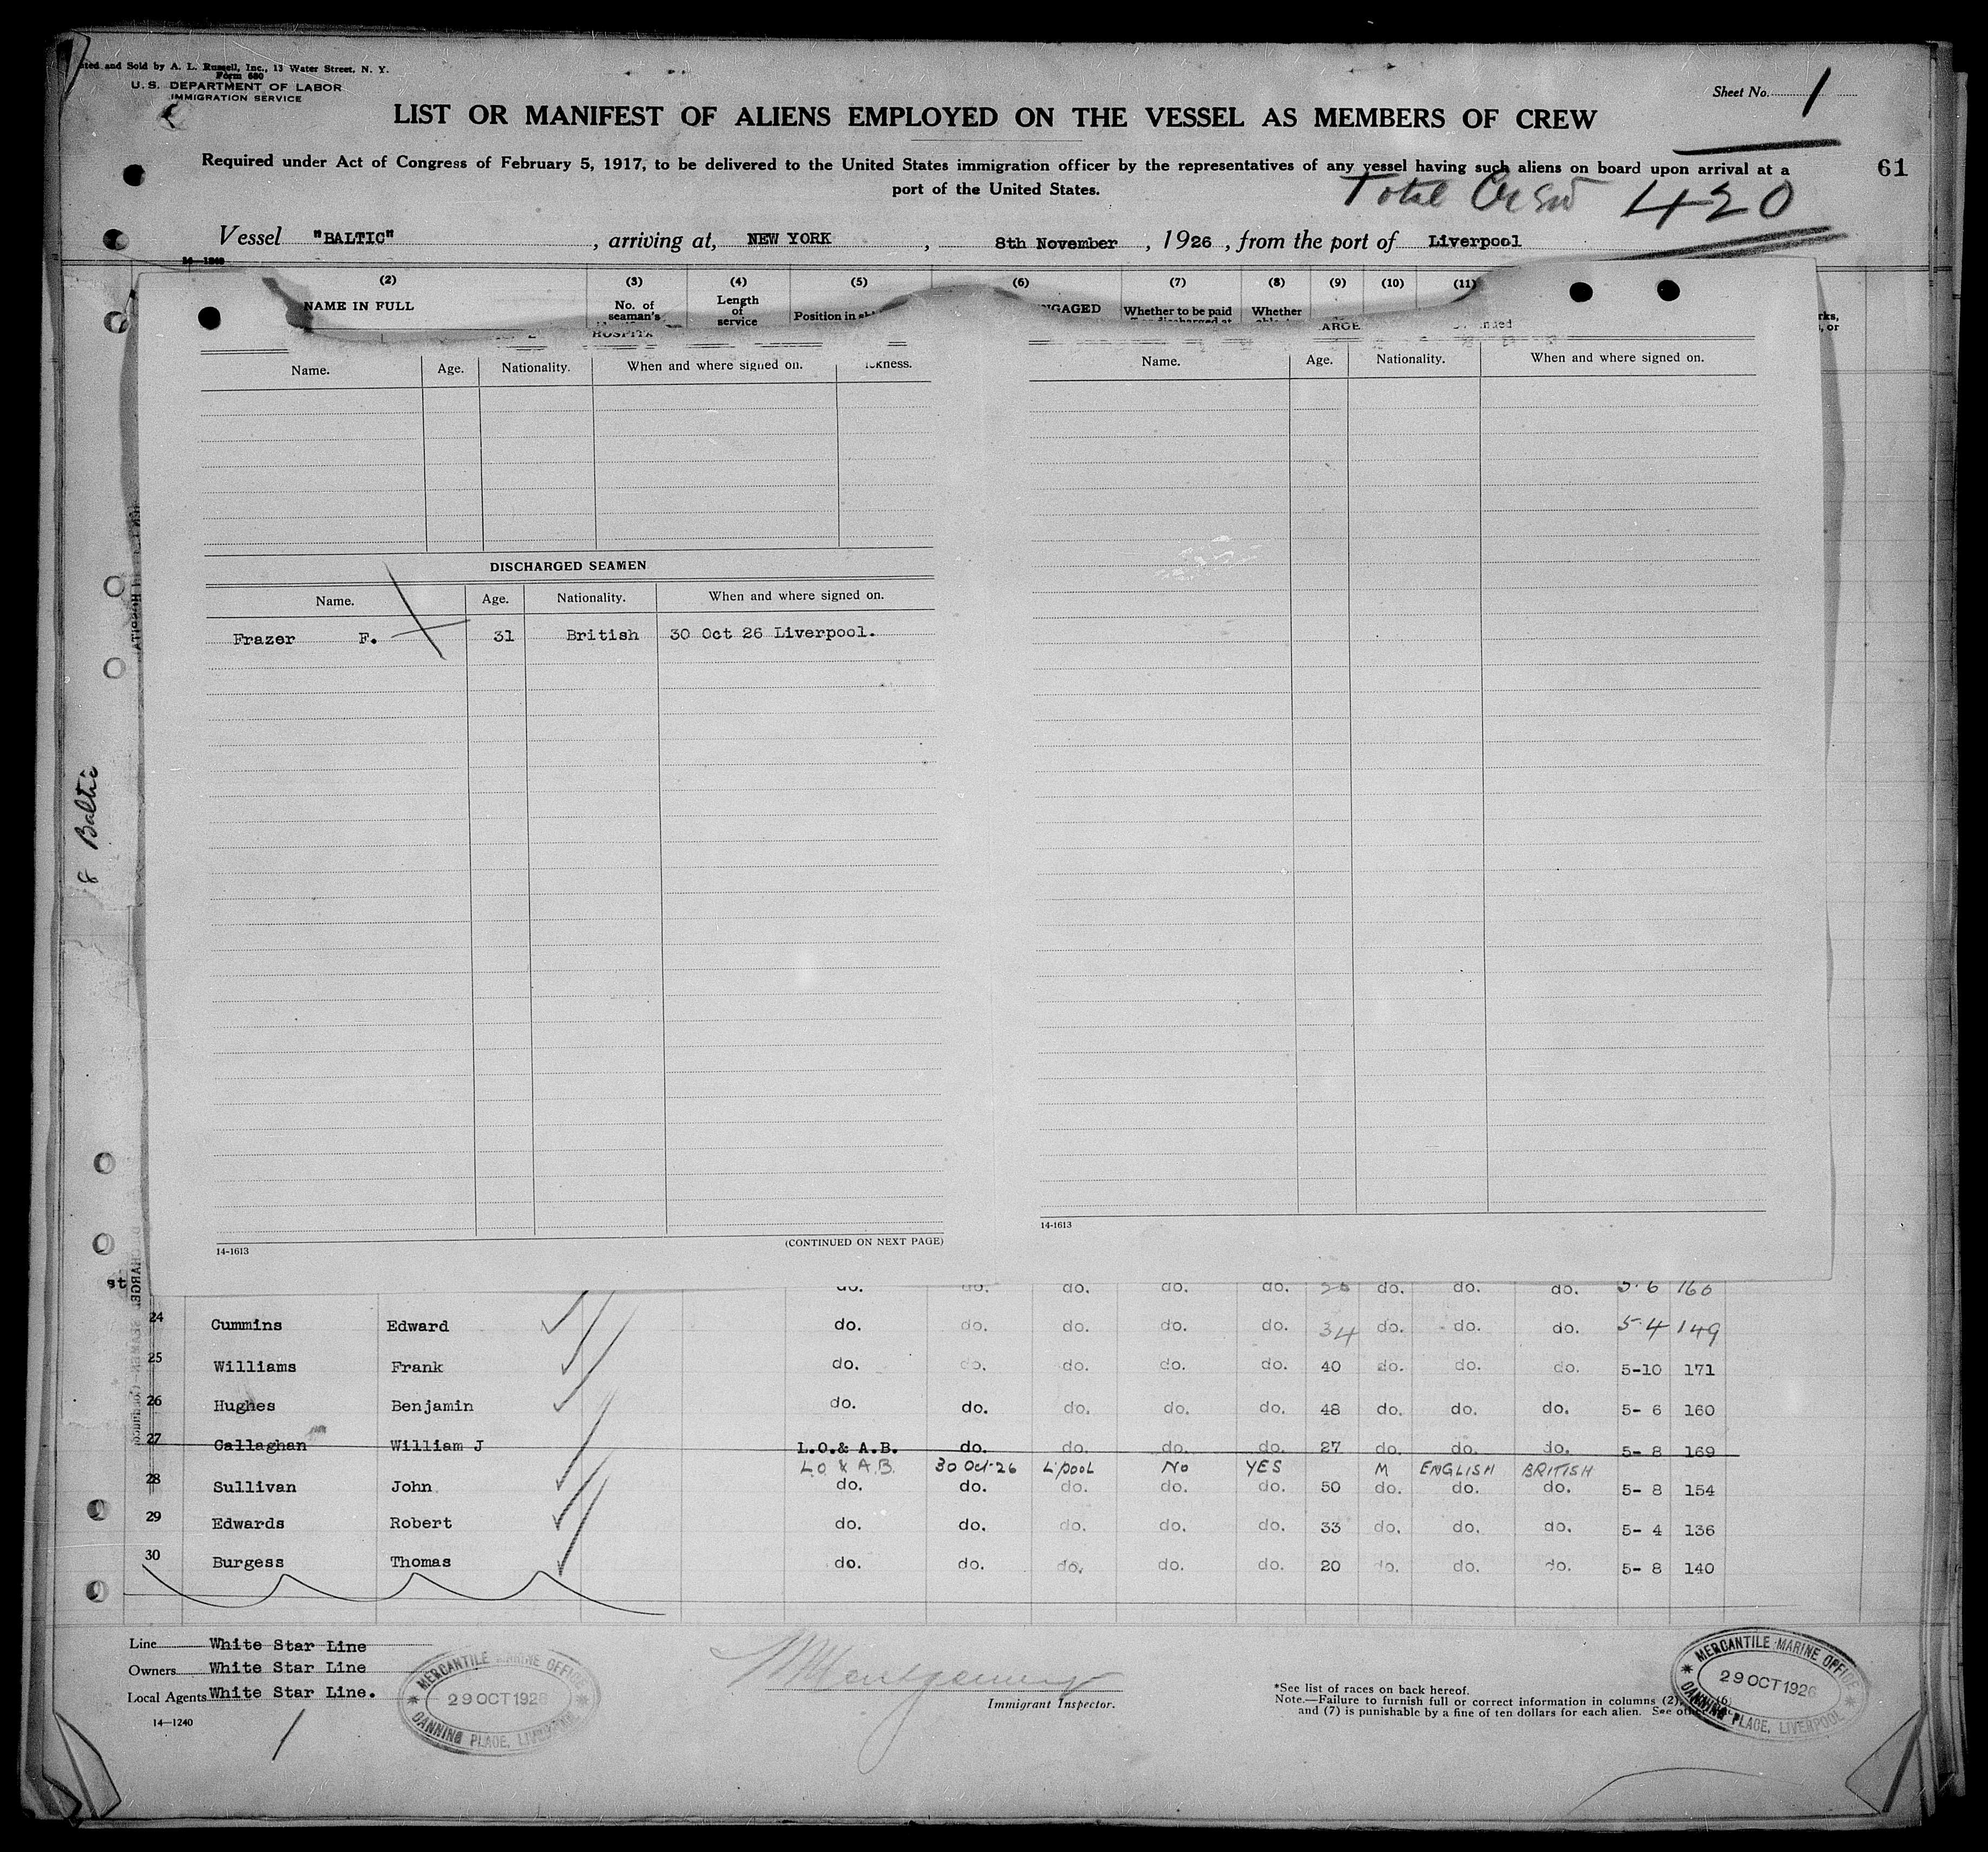 Sold by A. L. Russell, Inc., 13 Water Street, N. Y.
Form 680
U. S. DEPARTMENT OF LABOR
IMMIGRATION SERVICE
Sheet No. 1
LIST OR MANIFEST OF ALIENS EMPLOYED ON THE VESSEL AS MEMBERS OF CREW
Required under Act of Congress of February 5, 1917, to be delivered to the United States immigration officer by the representatives of any vessel having such aliens on board upon arrival at a
port of the United States.
61
Total Crew 420
Vessel "BALTIC", arriving at, NEW YORK, 8th November, 1926, from the port of Liverpool
(2) (3) (4) (5) (6) (7) (8) (9) (10) (11)
NAME IN FULL No. of seaman's Length of service Position in Whether to be paid Whether
Name. Age. Nationality. When and where signed on.
Name. Age. Nationality. When and where signed on.
DISCHARGED SEAMEN
Name. Age. Nationality. When and where signed on.
Frazer F. 31 British 30 Oct 26 Liverpool.
8 Baltic
14-1613 (CONTINUED ON NEXT PAGE)
14-1613
st do. do. do. do. do. do. do. 5-6 160
24 Cummins Edward do. do. do. do. do. 34 do. do. do. 5-4 149
25 Williams Frank do. do. do. do. do. 40 do. do. do. 5-10 171
26 Hughes Benjamin do. do. do. do. do. 48 do. do. do. 5- 6 160
27 Callaghan William J L.O.& A.B. do. do. do. do. 27 do. do. do. 5- 8 169
L.O & A.B. 30 Oct-26 L'pool No YES M ENGLISH BRITISH
28 Sullivan John do. do. do. do. do. 50 do. do. do. 5- 8 154
29 Edwards Robert do. do. do. do. do. 33 do. do. do. 5- 4 136
30 Burgess Thomas do. do. do. do. do. 20 do. do. do. 5- 8 140
Line White Star Line
Owners White Star Line
Local Agents White Star Line.
14—1240
MERCANTILE MARINE OFFICE
29 OCT 1926
CANNING PLACE, LIVERPOOL
Montgomery
Immigrant Inspector.
*See list of races on back hereof.
Note.—Failure to furnish full or correct information in columns (2), (6)
and (7) is punishable by a fine of ten dollars for each alien. See
MERCANTILE MARINE OFFICE
29 OCT 1926
CANNING PLACE, LIVERPOOL